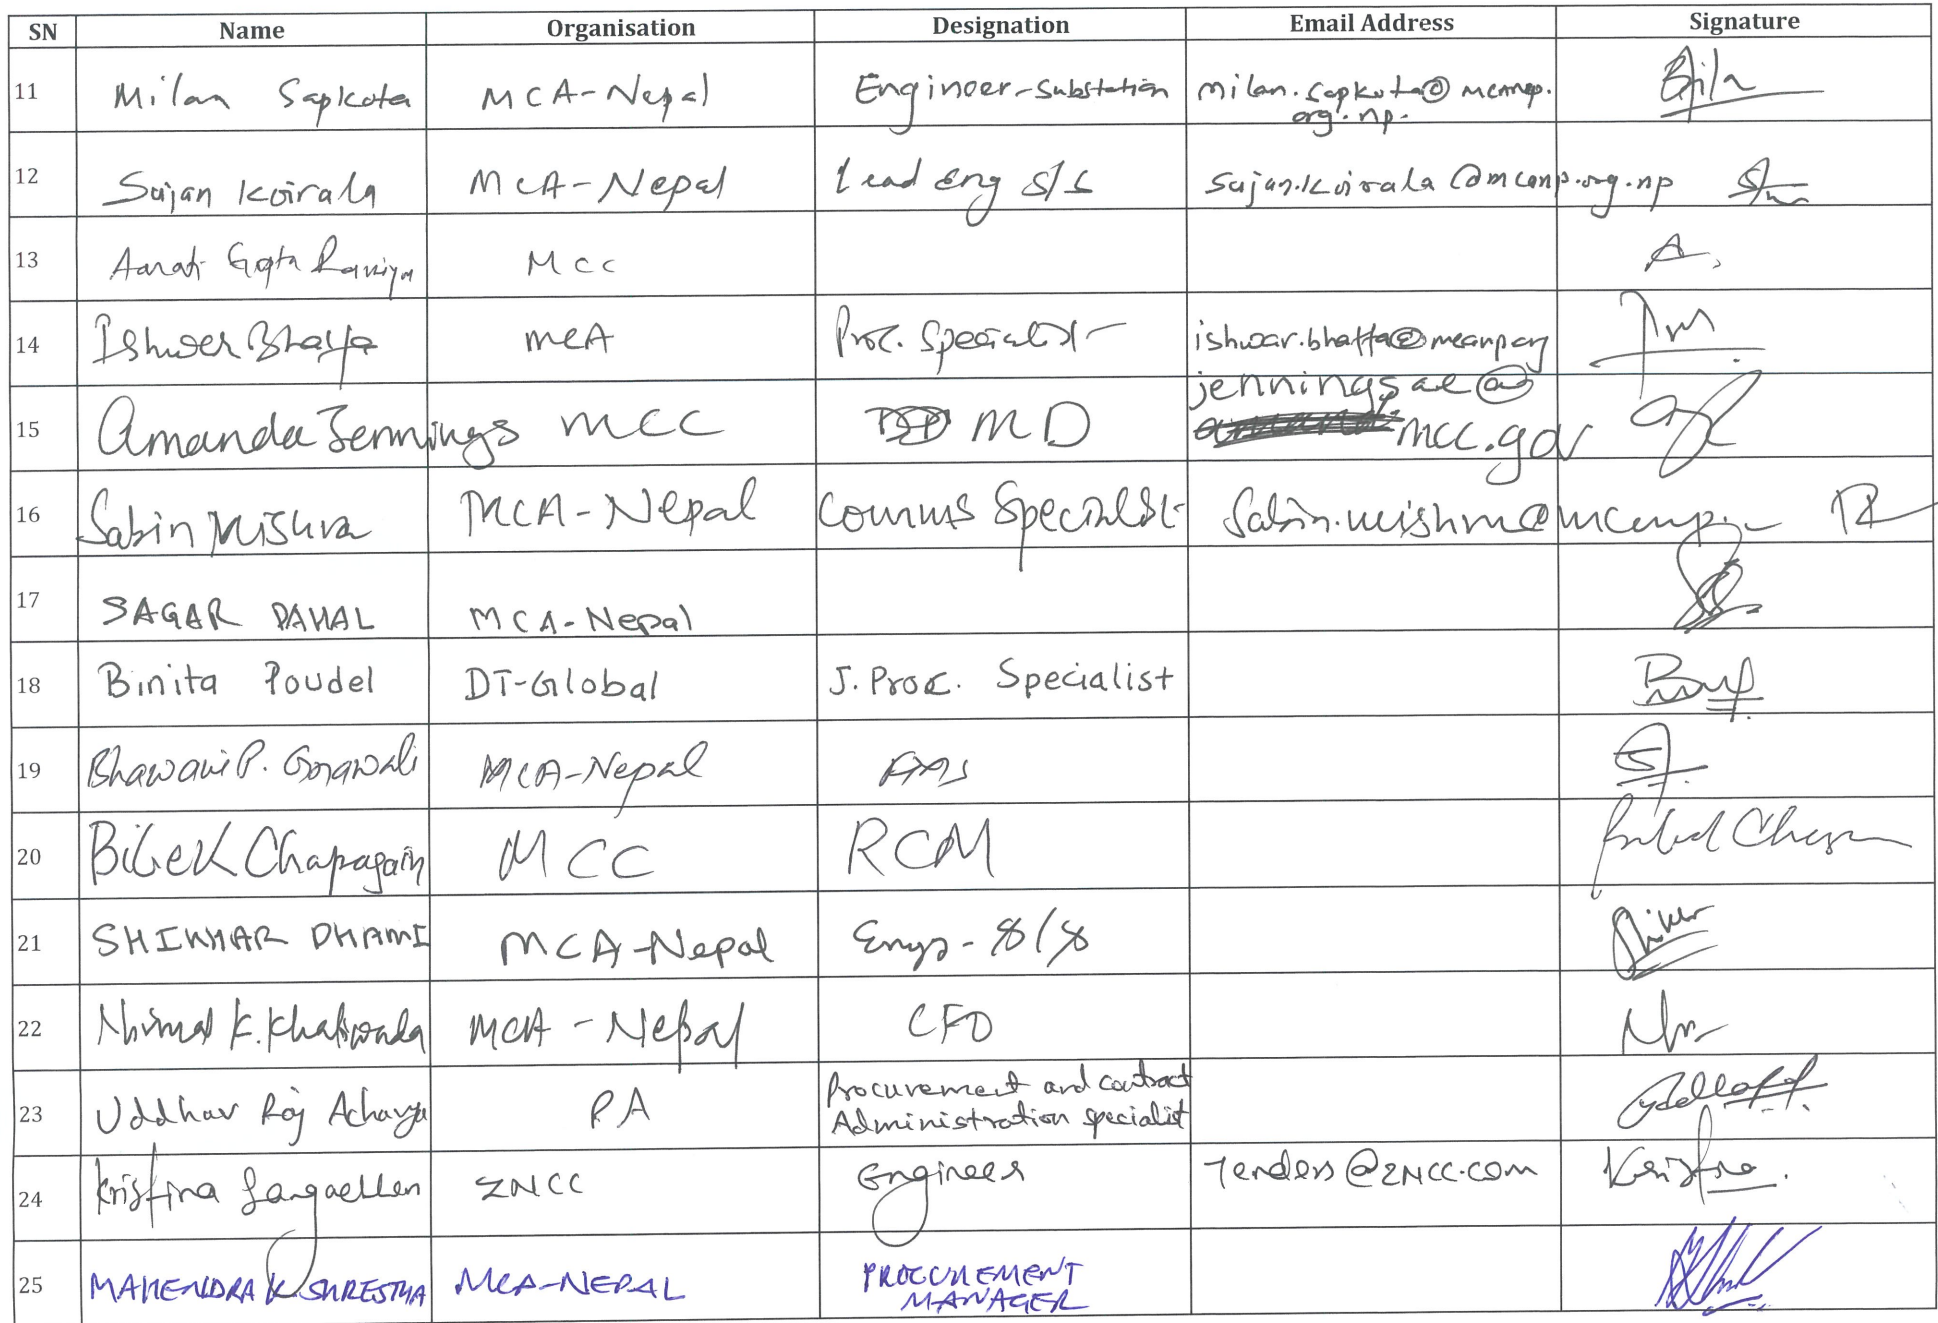 SN Name Organisation Designation Email Address Signature
11 Milan Sapkota MCA-Nepal Engineer-Substation milan.sapkota@mcanp.
org.np.
12 Sujan Koirala MCA-Nepal Lead Eng S/S sujan.koirala@mcanp.org.np
13 Aarati Gupta MCC A.
14 Ishwer Bhatta MCA Proc. Specialist ishwar.bhatta@mcanp.org
jenningsae@
15 Amanda Jennings MCC MD mcc.gov
16 Sabin Mishra MCA-Nepal Comms Specialist
17 SAGAR DAHAL MCA-Nepal
18 Binita Poudel DT-Global J. Proc. Specialist
19 Bhawani P. MCA-Nepal
20 Bibek Chapagain MCC RCM
21 SHIKHAR DHAMI MCA-Nepal Engr - S/S
22 K. Khatiwada MCA-Nepal CFO
Procurement and contract
23 Uddhav Raj Acharya PA Administration specialist
24 Kristina ZNCC Engineer Tenders@ZNCC.com Kristina.
25 MAHENDRA K SHRESTHA MCA-NEPAL PROCUREMENT
MANAGER